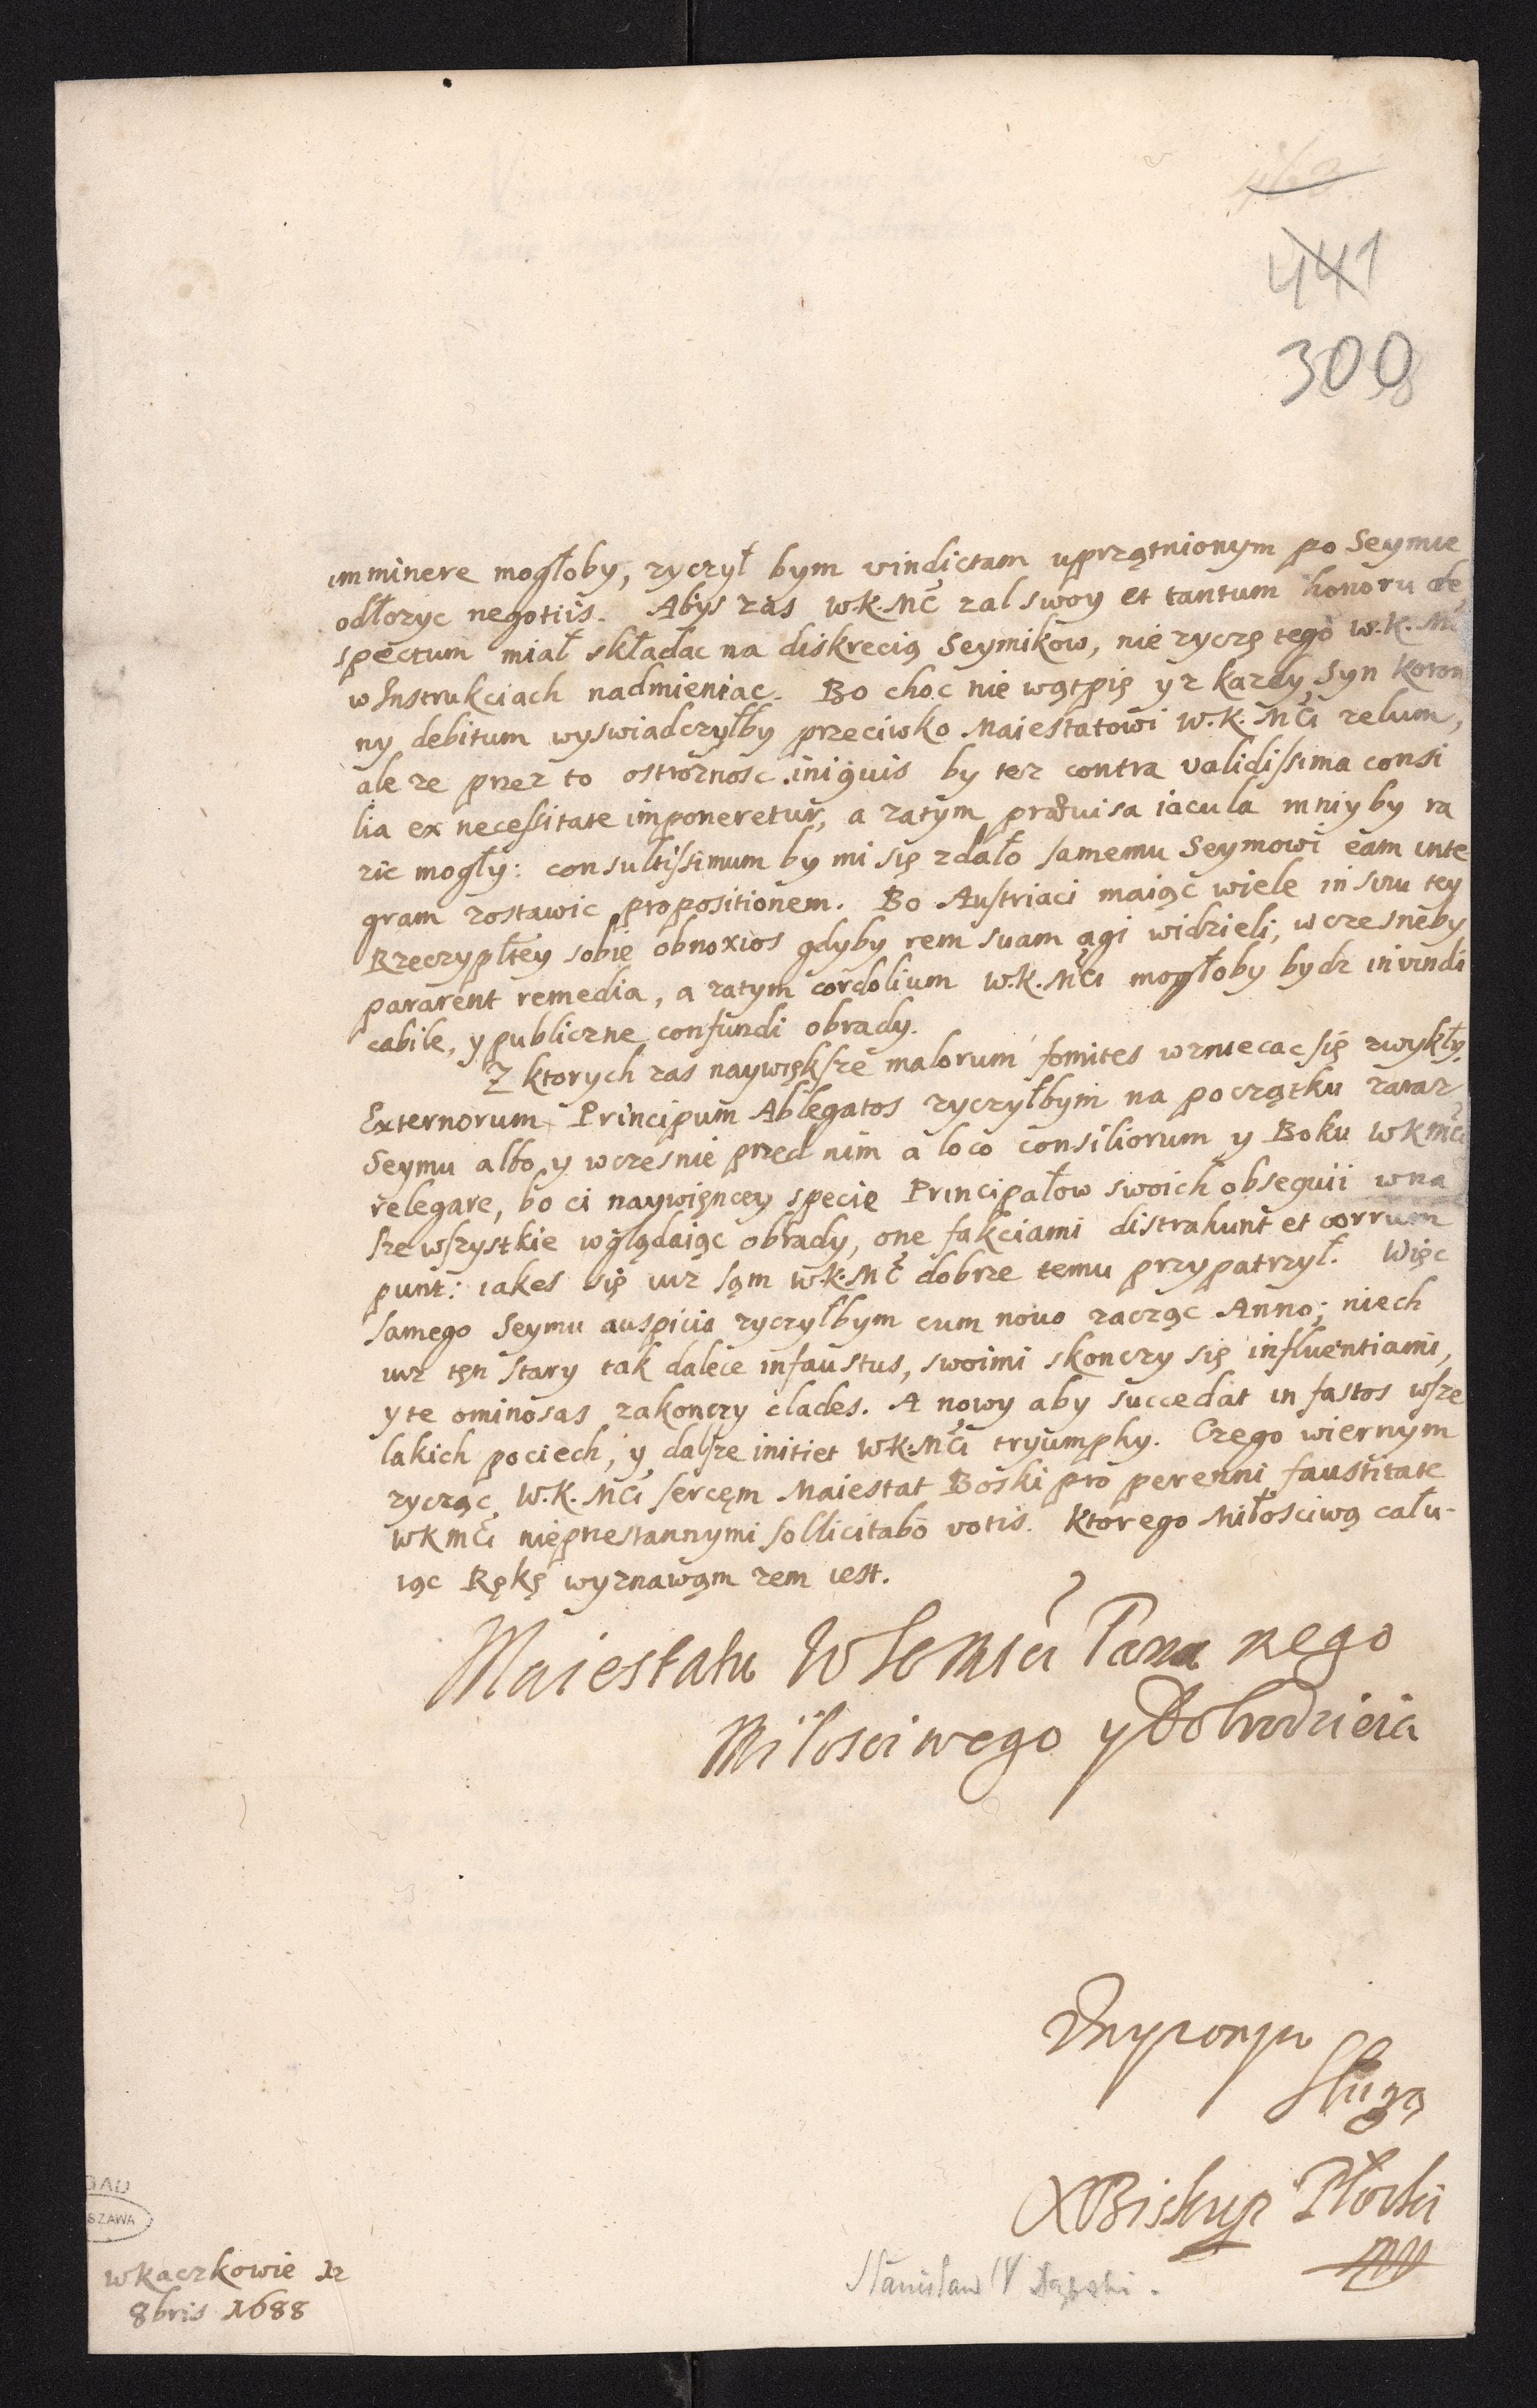 441
300
imminere mogłoby, zyczył bym vindictam uprzątnionym po Seymie
odłozyc negotiis. Abys zas W.K.Mć zal swoy et tantum honoru de
spectum miał składac na diskrecią Seymikow, nie zyczę tego W.K.Mć
w Instrukciach nadmieniac. Bo choc nie wątpię yz kazdy Syn Koron
ny debitum wyswiadczyłby przeciwko Maiestatowi W.K.Mći zelum,
ale ze przez to ostroznosc iniquis by tez contra validissima consi
lia ex necessitate imponeretur, a zatym prævisa iacula mniy by ra
zic mogły: consultissimum by mi się zdało samemu Seymowi eam inte
gram zostawic propositionem. Bo Austriaci maiąc wiele in sinu tey
Rzeczypltey sobie obnoxios gdyby rem suam agi widzieli, wczesneby
pararent remedia, a zatym cordolium W.K.Mći mogłoby bydz invindi
cabile, y publiczne confundi obrady.
Z ktorych zas naywiększe malorum fomites wzniecac się zwykły.
Externorum Principum Ablegatos zyczyłbym na początku zaraz
Seymu albo y wczesnie przed nim a loco consiliorum y Boku WKMći
relegare, bo ci naywięncey specie Principałow swoich obsequii w na
sze wszystkie wglądaiąc obrady, one fakciami distrahunt et corrum
punt: iakes się iuz sąm W.K.Mć dobrze temu przypatrzył. Więc
samego Seymu auspicia zyczyłbym cum novo zacząc Anno; niech
iuz tęn stary tak dalece infaustus, swoimi skonczy się influentiami,
y te ominosas zakonczy clades. A nowy aby succedat in fastos wsze
lakich pociech, y dalsze initiet W.K.Mći tryumphy. Czego wiernym
zycząc W.K.Mći sercęm Maiestat Boski pro perenni faustitate
WKMći nieprzestannymi sollicitabo votis. Ktorego Miłosciwą cału-
iąc Rękę wyznawąm zem iest.
Maiestatu WKMći Pana mego
Miłosciwego y Dobrodzieia
Unizonym
Sługą
XBiskup Płocki
Stanisław Dąbski.
w Kaczkowie 12
8bris 1688
GAD
SZAWA